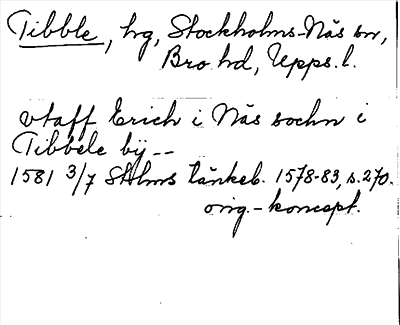 Tibble, hg, Stockholms-Näs sn,
Bro hd, Upps. l.
vtaff Erich i Näs sochn i
Tibbele bÿ--
1581 3/7 Sthlms tänkeb. 1578-83, s. 270.
orig.-koncept.